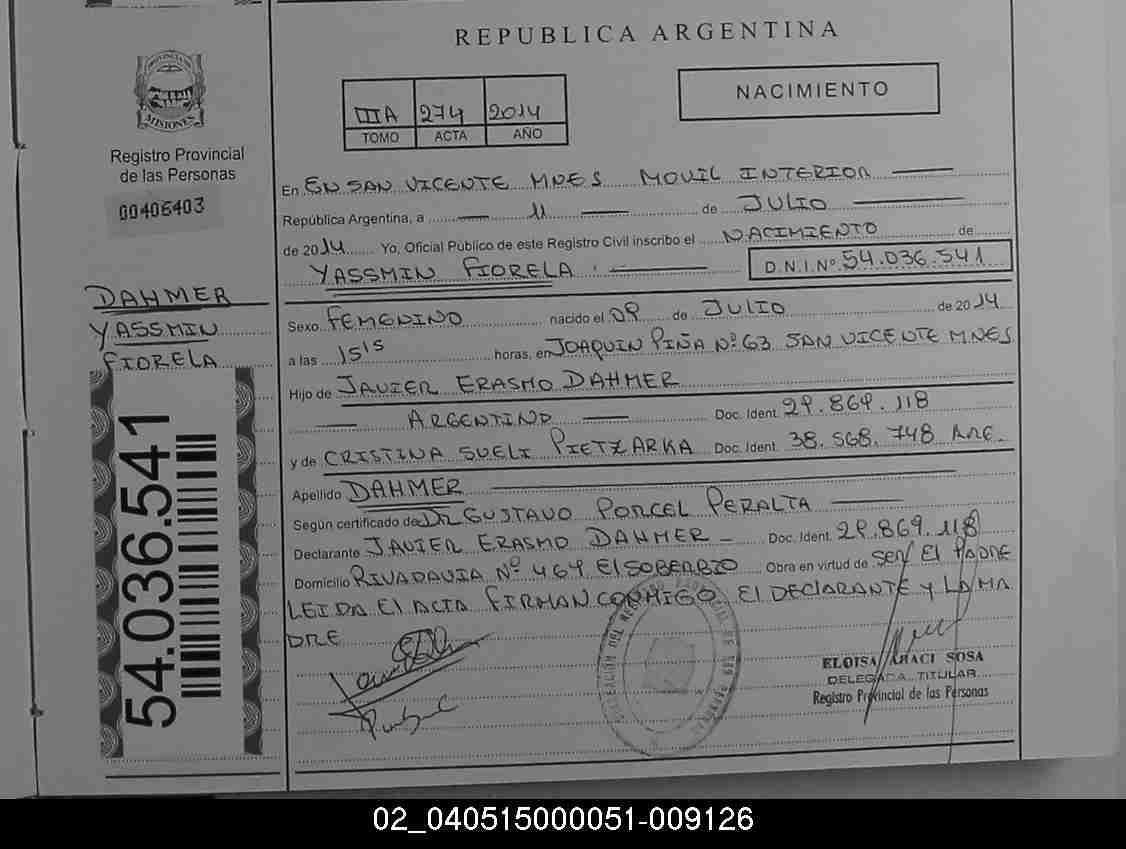 REPUBLICA ARGENTINA
PROVINCIA DE
MISIONES
Registro Provincial
de las Personas
00406403
IIIA 274 2014
TOMO ACTA AÑO
NACIMIENTO
En EN SAN VICENTE MNES MOVIL INTERIOR
República Argentina, a 11 de JULIO
de 2014 Yo, Oficial Público de este Registro Civil inscribo el NACIMIENTO de
YASSMIN FIORELA . D.N.I.Nº 54.036.541
DAHMER
YASSMIN
FIORELA
54.036.541
Sexo FEMENINO nacido el 09 de JULIO de 2014
a las 15 15 horas, en JOAQUIN PIÑA Nº 63 SAN VICENTE MNES
Hijo de JAVIER ERASMO DAHMER
ARGENTINO Doc. Ident. 29.869.118
y de CRISTINA SUELI PIETZARKA Doc. Ident. 38.568.748 ARG.
Apellido DAHMER
Según certificado de Dr GUSTAVO PORCEL PERALTA
Declarante JAVIER ERASMO DAHMER Doc. Ident. 29.869.118
Domicilio RIVADAVIA Nº 469 El SOBERBIO Obra en virtud de SER El PADRE
LEIDA El ACTA FIRMAN CONMIGO El DECLARANTE Y LA MA
DRE
ELOISA ARACI SOSA
DELEGADA TITULAR
Registro Provincial de las Personas
02_040515000051-009126